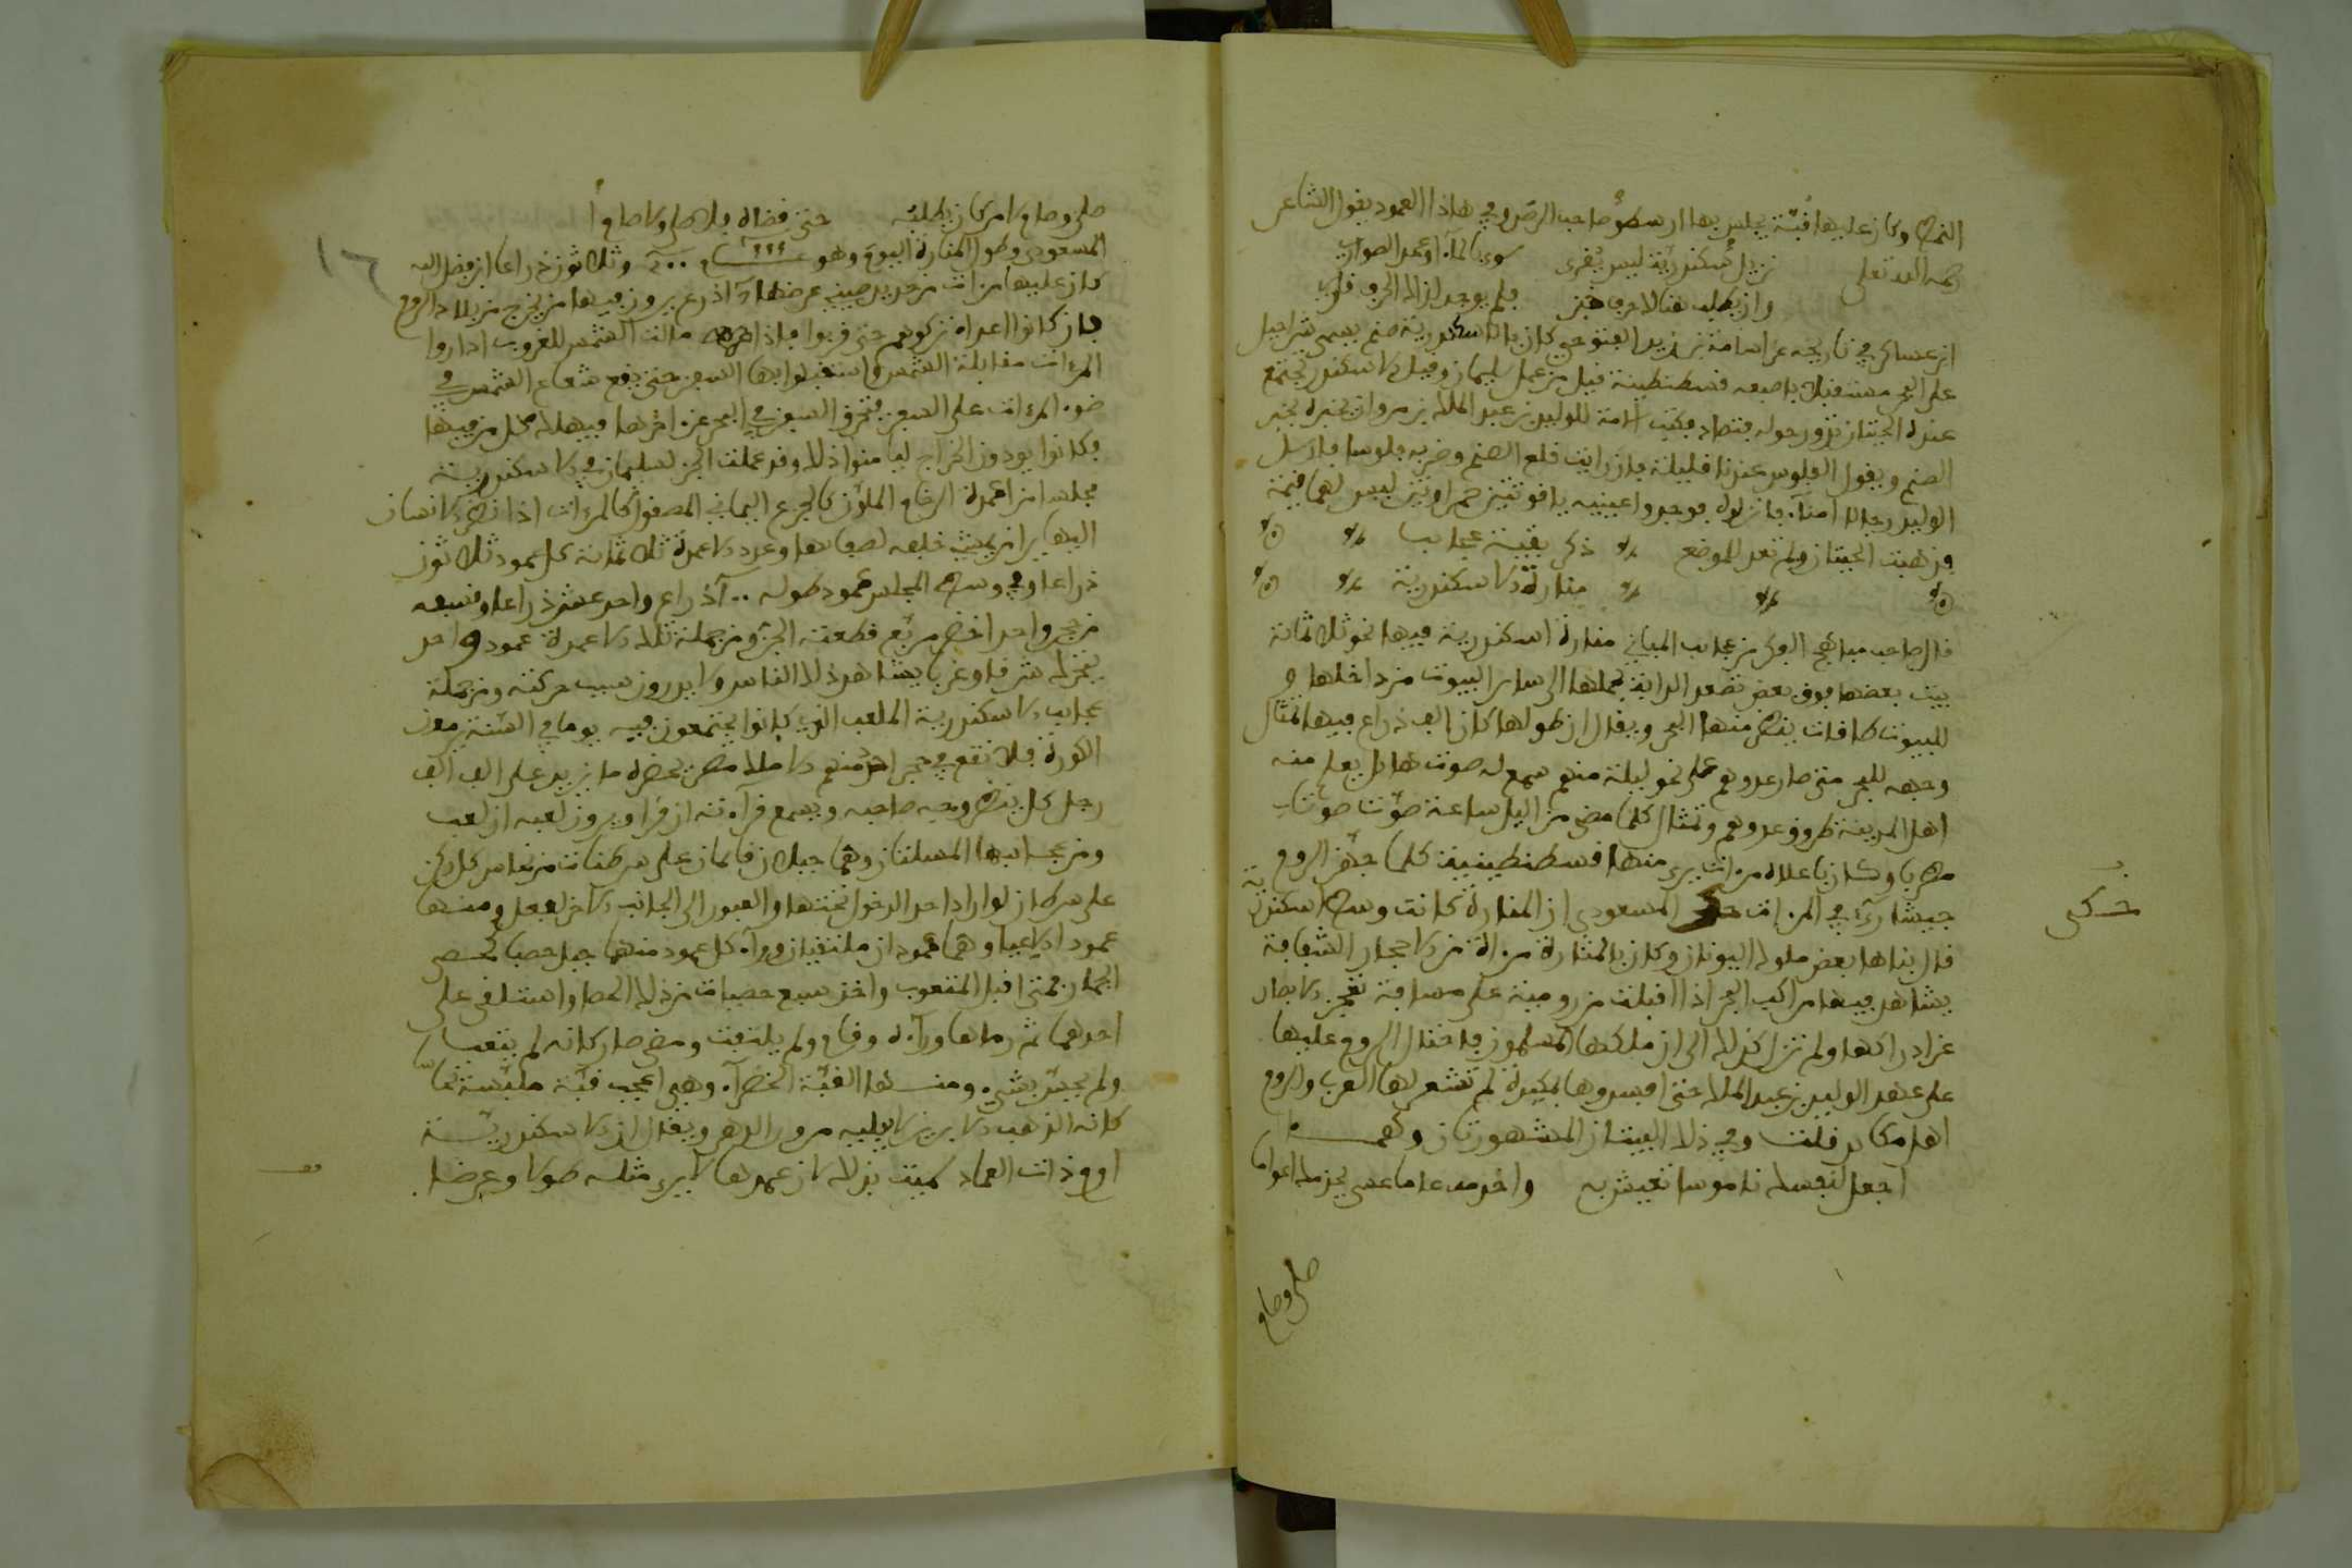 النمط وكان عليها قبّة يجلس بها ارسطو صاحب الرصد وفي هاذا العمود يقول الشاعر
رحمه الله تعلى نزيل سكندرية ليس يُقرى سوى بالمآء او عمد الصوارى
وان يطلب هنالك حرف خبز فلم يوجد لذاك الحرف قارى
ابن عساكر في تاريخه عن اسامة بن زيد التنوخي كان بالاسكندرية صنم يسمى شراحيل
على البحر مستقبلا باصبعه قسطنطينة قيل من عمل سليمان وقيل الاسكندر تجتمع
عنده الحيتان تدور حوله فتصاد فكتب اسامة للوليد بن عبد الملك بن مروان يخبره بخبر
الصنم ويقول الفلوس عندنا قليلة فان رايت قلع الصنم وضربه فلوسا فارسل
الوليد رجالا امنآء فانزلوه فوجدوا عينيه ياقوتتين حمراوتين ليس لهما قيمة
فذهبت الحيتان ولم تعد للموضع ذكر بقية عجايب
منارة الاسكندرية
قال صاحب مباهج الفكر من عجايب المباني منارة اسكندرية فيها نحو ثلاثماية
بيت بعضها فوق بعض تصعد الدابة بحملها الى ساير البيوت من داخلها و
للبيوت طاقات ينظر منها البحر ويقال ان طولها كان الف ذراع فيها تمثال
وجهه للبحر متى صار عدوهم على نحو ليلة منهم سمع له صوت هايل يعلم منه
اهل المدينة طروق عدوهم وتمثال كلما مضى من اليل ساعة صوّت صوتا
مطربا وكان باعلاه مرءات يرى منها قسطنطينية كلما جهّز الروم
جيشا رءى في المرءات حكى المسعودي ان المنارة كانت وسط اسكندرية
حكى
قال بناها بعض ملوك اليونان وكان بالمنارة مرءاة من الاحجار الشفافة
يشاهد فيها مراكب البحر اذا اقبلت من رومية على مسافة تعجز الابصار
عن ادراكها ولم تزل كذلك الى ان ملكها المسلمون فاحتال الروم عليها
على عهد الوليد بن عبد الملك حتى افسدوها بمكيدة لم تشعر لها العرب والروم
اهل مكايد قلت وفي ذلك البيتان المشهورتان وهمـــا
اجعل لنفسك ناموسا تعيش به واخدمه عاما عسى يخدمك اعواما
صلى وصام
صلى وصام لامر كان يطلبه حتى قضاه فلا صلى ولا صاما
المسعودي وطول المنارة اليوم وهو ٢٠٠ وثلاثون ذراعا ابن فضل الله
كان عليها مرءات من حديد صيني عرضها ٧ اذرع يرون فيها من يخرج من بلاد الروم
فان كانوا اعداء تركوهم حتى قربوا فاذا مالت الشمس للغروب اداروا
المرءات مقابلة الشمس واستقبلوا بها السفن حتى يقع شعاع الشمس في
ضوء المرءات على السفن فتحرق السفن في البحر عن اخرها فيهلك كل من فيها
وكانوا يودون الخراج ليامنوا ذلك وقد عملت الجن لسليمان في الاسكندرية
مجلسا من اعمدة الرخام الملوّن كالجزع اليماني المصقول كالمرءات اذا نظر الانسان
اليها يرا من يمشي خلفه لصفاءها وعدد الاعمدة ثلاثماية كل عمود ثلاثون
ذراعا وفي وسط المجلس عمود طوله ١٠٠ ذراع واحد عشر ذراعا وسقفه
من حجر واحد اخضر مربّع قطعته الجن ومن جملة تلك الاعمدة عمود واحد
يتحرك شرقا وغربا يشاهد ذلك الناس ولا يدرون سبب حركته ومن جملة
عجايب الاسكندرية الملعب الذي كانوا يجتمعون فيه يوما في السّنة يرمون
الكورة فلا تقع في حجر احد منهم الا ملك مصر يحضره ما يزيد على الف الف
رجل كل ينظر وجه صاحبه ويسمع قراءته ان قرا ويرون لعبه ان لعب
ومن عجايبها المسلتان وهما جبلان قائمان على سرطانات من نحاس كل ركن
على سرطان لو اراد احد الدخول تحتها والعبور الى الجانب الآخر لفعل ومنها
عمودا الاعيا وهما عمودان ملتقيان ورآء كل عمود منها جبل حصا كحصى
الجمار فمتى اقبل المتعوب واخذ سبع حصيات من ذلك الحصا واستلقى على
احدهما ثم رماها ورآءه وقام ولم يلتفت ومضى صار كانه لم يتعب
ولم يحسّ بشيء ومنها القبّة الخضرآء وهي اعجب قبّة ملبّسة نحاسا
كانه الذهب الابريز لا يبليه مرور الدهر ويقال ان الاسكندريّة
ارم ذات العماد سميت بذلك لان عمدها لا يرى مثله طولا وعرضا